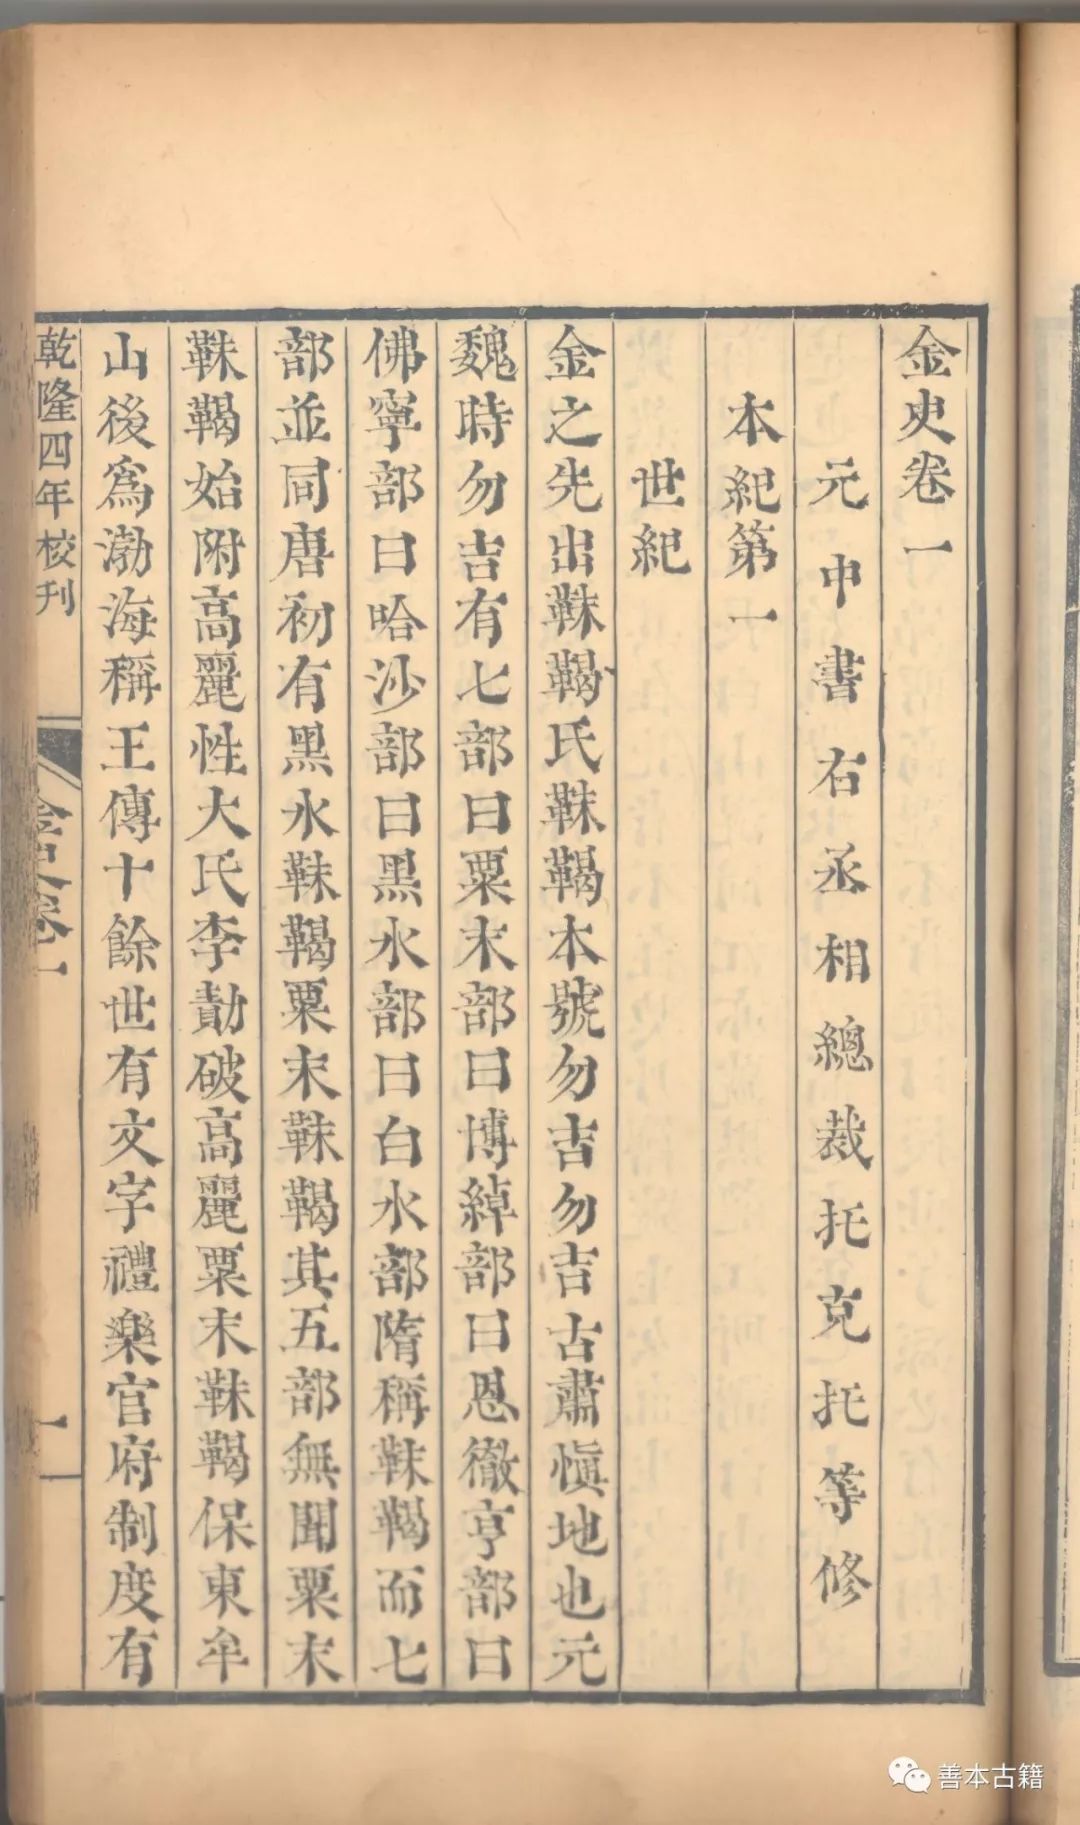 金史卷一
元中書右丞相總裁托克托等修
本紀第一
世紀
金之先出靺鞨氏靺鞨本號勿吉勿吉古肅愼地也元
魏時勿吉有七部曰粟末部曰博綽部曰恩徹亨部曰
佛寧部曰哈沙部曰黑水部曰白水部隋稱靺鞨而七
部並同唐初有黑水靺鞨粟末靺鞨其五部無聞粟末
靺鞨始附高麗性大氏李勣破高麗粟末靺鞨保東牟
山後爲渤海稱王傳十餘世有文字禮樂官府制度有
乾隆四年校刊
金史卷一
一
善本古籍